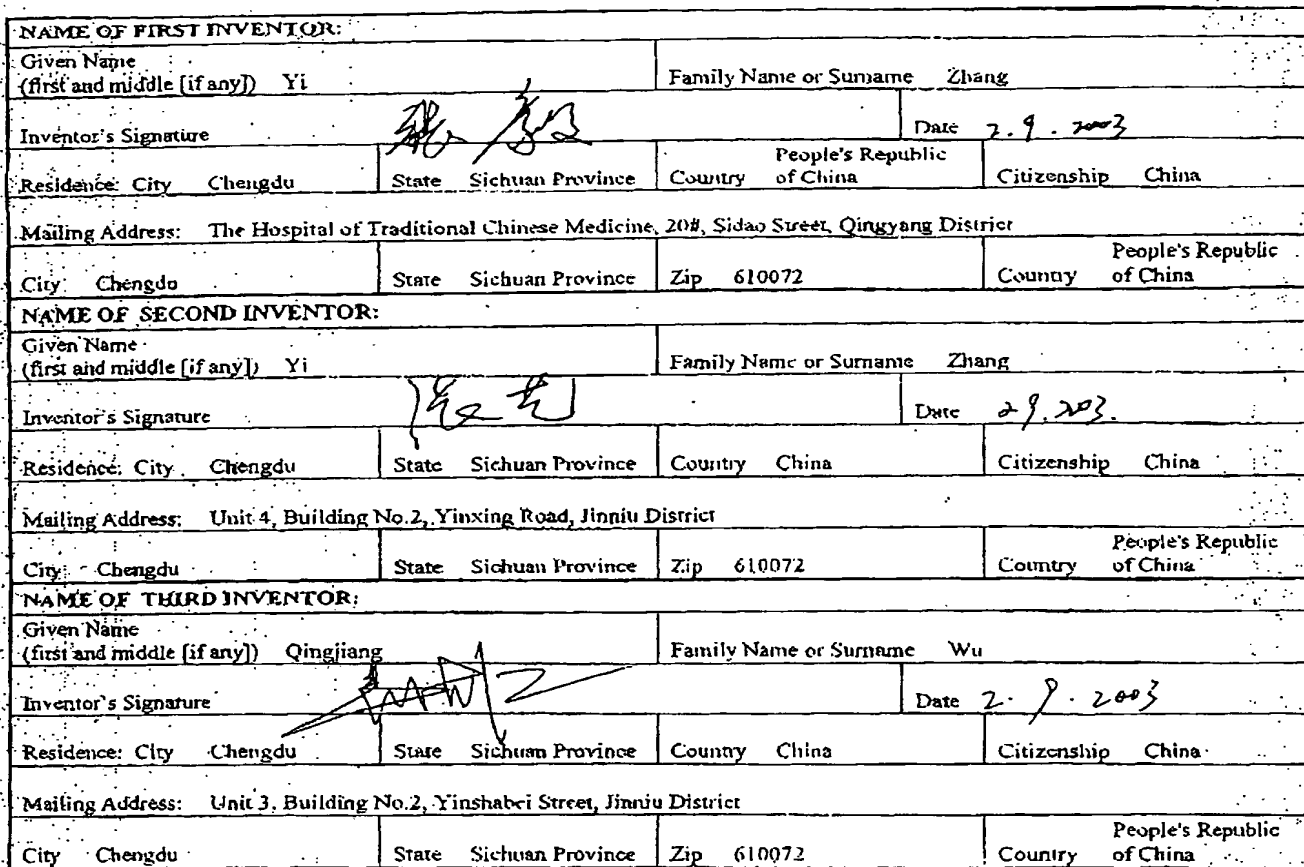 NAME OF FIRST INVENTOR:
Given Name
(first and middle [if any]) Yi Family Name or Surname Zhang
Inventor's Signature Date 2.9.2003
Residence: City Chengdu State Sichuan Province Country People's Republic of China Citizenship China
Mailing Address: The Hospital of Traditional Chinese Medicine, 20#, Sidao Street, Qingyang District
City Chengdu State Sichuan Province Zip 610072 Country People's Republic of China
NAME OF SECOND INVENTOR:
Given Name
(first and middle [if any]) Yi Family Name or Surname Zhang
Inventor's Signature Date 2 9.2003.
Residence: City Chengdu State Sichuan Province Country China Citizenship China
Mailing Address: Unit 4, Building No.2, Yinxing Road, Jinniu District
City Chengdu State Sichuan Province Zip 610072 Country People's Republic of China
NAME OF THIRD INVENTOR:
Given Name
(first and middle [if any]) Qingjiang Family Name or Surname Wu
Inventor's Signature Date 2.9.2003
Residence: City Chengdu State Sichuan Province Country China Citizenship China
Mailing Address: Unit 3. Building No.2, Yinshabei Street, Jinniu District
City Chengdu State Sichuan Province Zip 610072 Country People's Republic of China